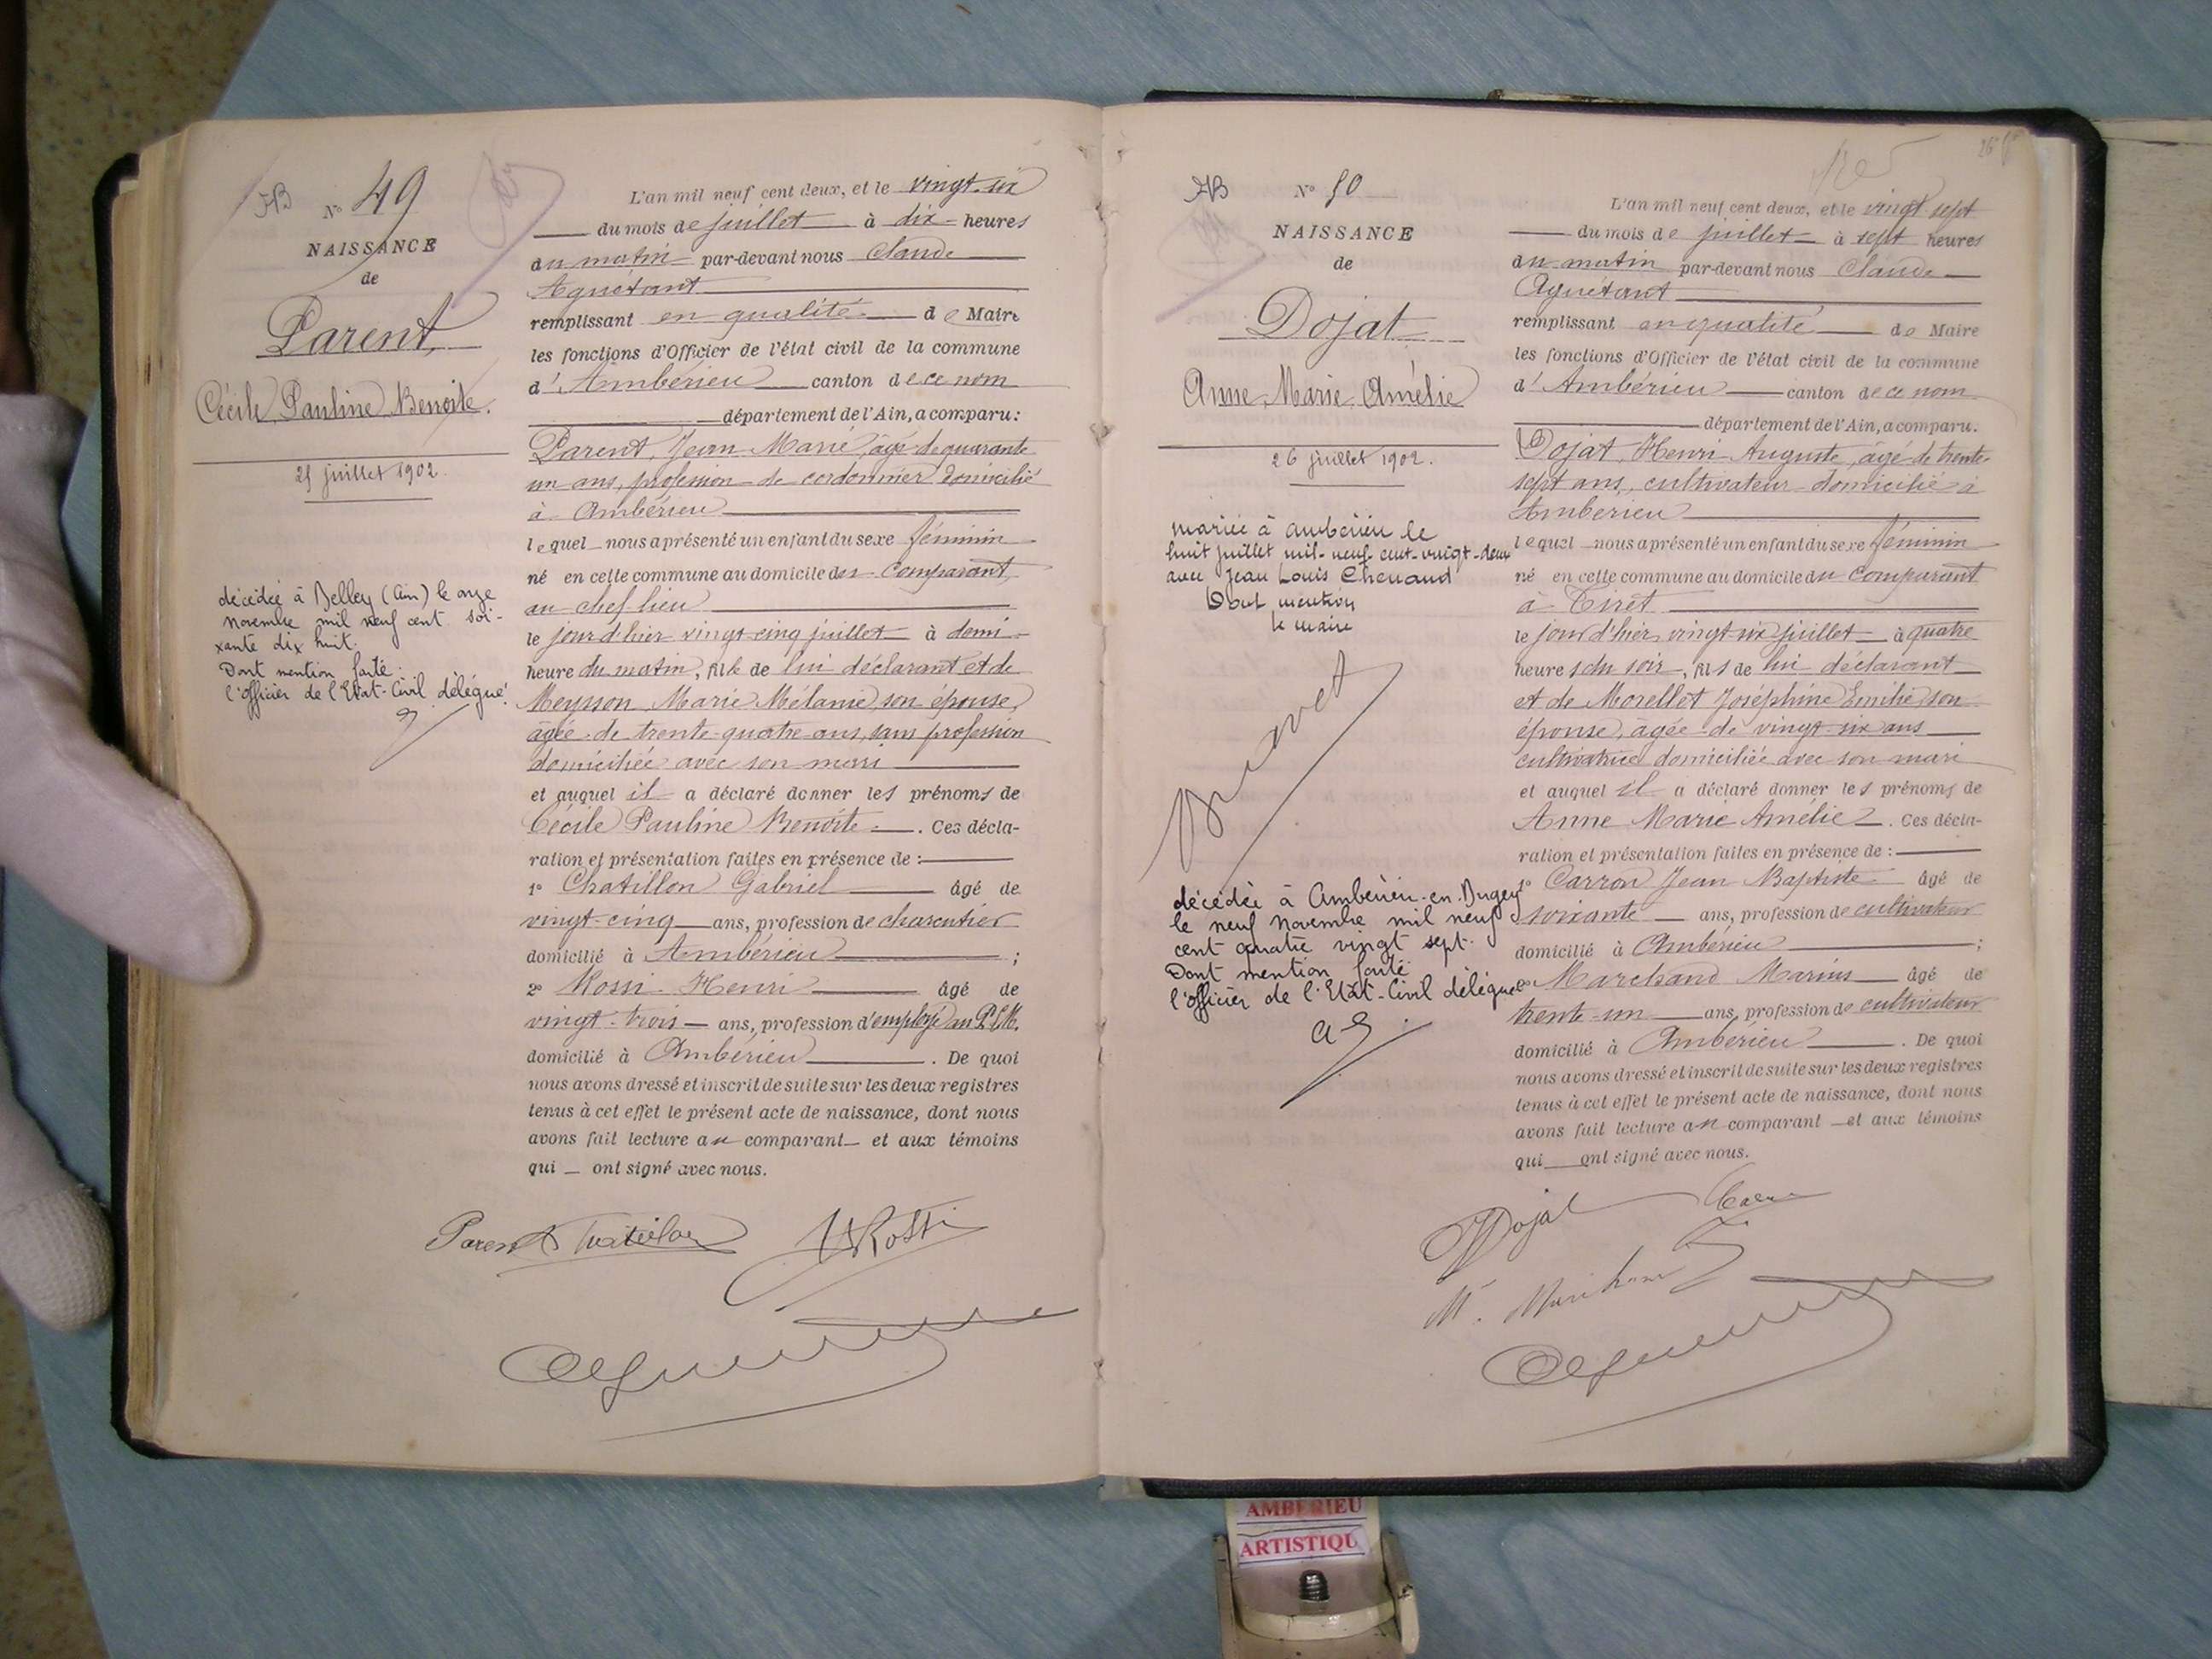 AB
N° 49
NAISSANCE
de
Parent,
Cécile Pauline Benoite.
25 juillet 1902.
décédée à Belley (Ain) le onze
novembre mil neuf cent soi-
xante dix huit.
Dont mention faite.
l'officier de l'Etat-Civil délégué.
L'an mil neuf cent deux, et le vingt-six
du mois de juillet à dix heures
du matin par-devant nous Claude
Aguétant
remplissant en qualité de Maire
les fonctions d'Officier de l'état civil de la commune
d'Ambérieu canton de ce nom
département de l'Ain, a comparu:
Parent, Jean Marie, âgé de quarante
un ans, profession de cordonnier domicilié
à Ambérieu
lequel nous a présenté un enfant du sexe féminin
né en cette commune au domicile du comparant
au chef-lieu
le jour d'hier vingt-cinq juillet à demi-
heure du matin, fille de lui déclarant et de
Meysson Marie Mélanie, son épouse,
âgée de trente-quatre ans, sans profession
domiciliée avec son mari
et auquel il a déclaré donner les prénoms de
Cécile Pauline Benoite. Ces décla-
ration et présentation faites en présence de :
1° Chatillon Gabriel âgé de
vingt-cinq ans, profession de charcutier
domicilié à Ambérieu ;
2° Rossi Henri âgé de
vingt-trois ans, profession d'employé au P.L.M.
domicilié à Ambérieu. De quoi
nous avons dressé et inscrit de suite sur les deux registres
tenus à cet effet le présent acte de naissance, dont nous
avons fait lecture au comparant et aux témoins
qui ont signé avec nous.
Parent
HRossi
AB
N° 50
NAISSANCE
de
Dojat
Anne, Marie, Amélie
26 juillet 1902.
mariée à Ambérieu le
huit juillet mil-neuf-cent-vingt-deux
avec Jean Louis Chenaud
Dont mention
le maire
décédée à Ambérieu-en-Bugey
le neuf novembre mil neuf
cent quatre vingt sept.
Dont mention faite
l'officier de l'Etat-Civil délégué
L'an mil neuf cent deux, et le vingt-sept
du mois de juillet à sept heures
du matin par-devant nous Claude
Aguétant
remplissant en qualité de Maire
les fonctions d'Officier de l'état civil de la commune
d'Ambérieu canton de ce nom
département de l'Ain, a comparu.
Dojat, Henri Auguste, âgé de trente-
sept ans, cultivateur domicilié à
Ambérieu
lequel nous a présenté un enfant du sexe féminin
né en cette commune au domicile du comparant
à Tiret
le jour d'hier, vingt-six juillet à quatre
heures du soir, fils de lui déclarant
et de Morellet Joséphine Emilie, son
épouse, âgée de vingt-six ans
cultivatrice domiciliée avec son mari
et auquel il a déclaré donner les prénoms de
Anne Marie Amélie. Ces décla-
ration et présentation faites en présence de :
1° Carron Jean Baptiste âgé de
soixante ans, profession de cultivateur
domicilié à Ambérieu ;
2° Marchand Marius âgé de
trente-un ans, profession de cultivateur
domicilié à Ambérieu. De quoi
nous avons dressé et inscrit de suite sur les deux registres
tenus à cet effet le présent acte de naissance, dont nous
avons fait lecture au comparant et aux témoins
qui ont signé avec nous.
Dojat
AMBERIEU
ARTISTIQU